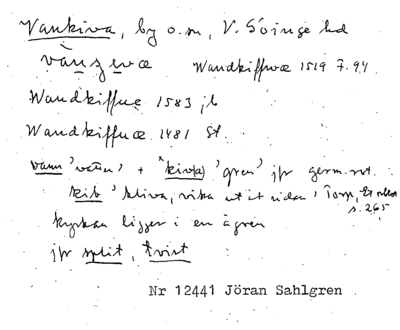 Vankiva, by o. sn, V. Göinge hd
vänzewæ Wandkiffwæ 1519 7.94
Wandkiffue 1583 jb
Wandkiffuæ 1481 St.
vann 'vatten' + *kiv(a) 'gren' jfr germ. rot.
kib 'kliva, vika ut åt sidan' Torp, Et. s. 265
kyrkan ligger i en ågren
jfr split, tvist
Nr 12441 Jöran Sahlgren